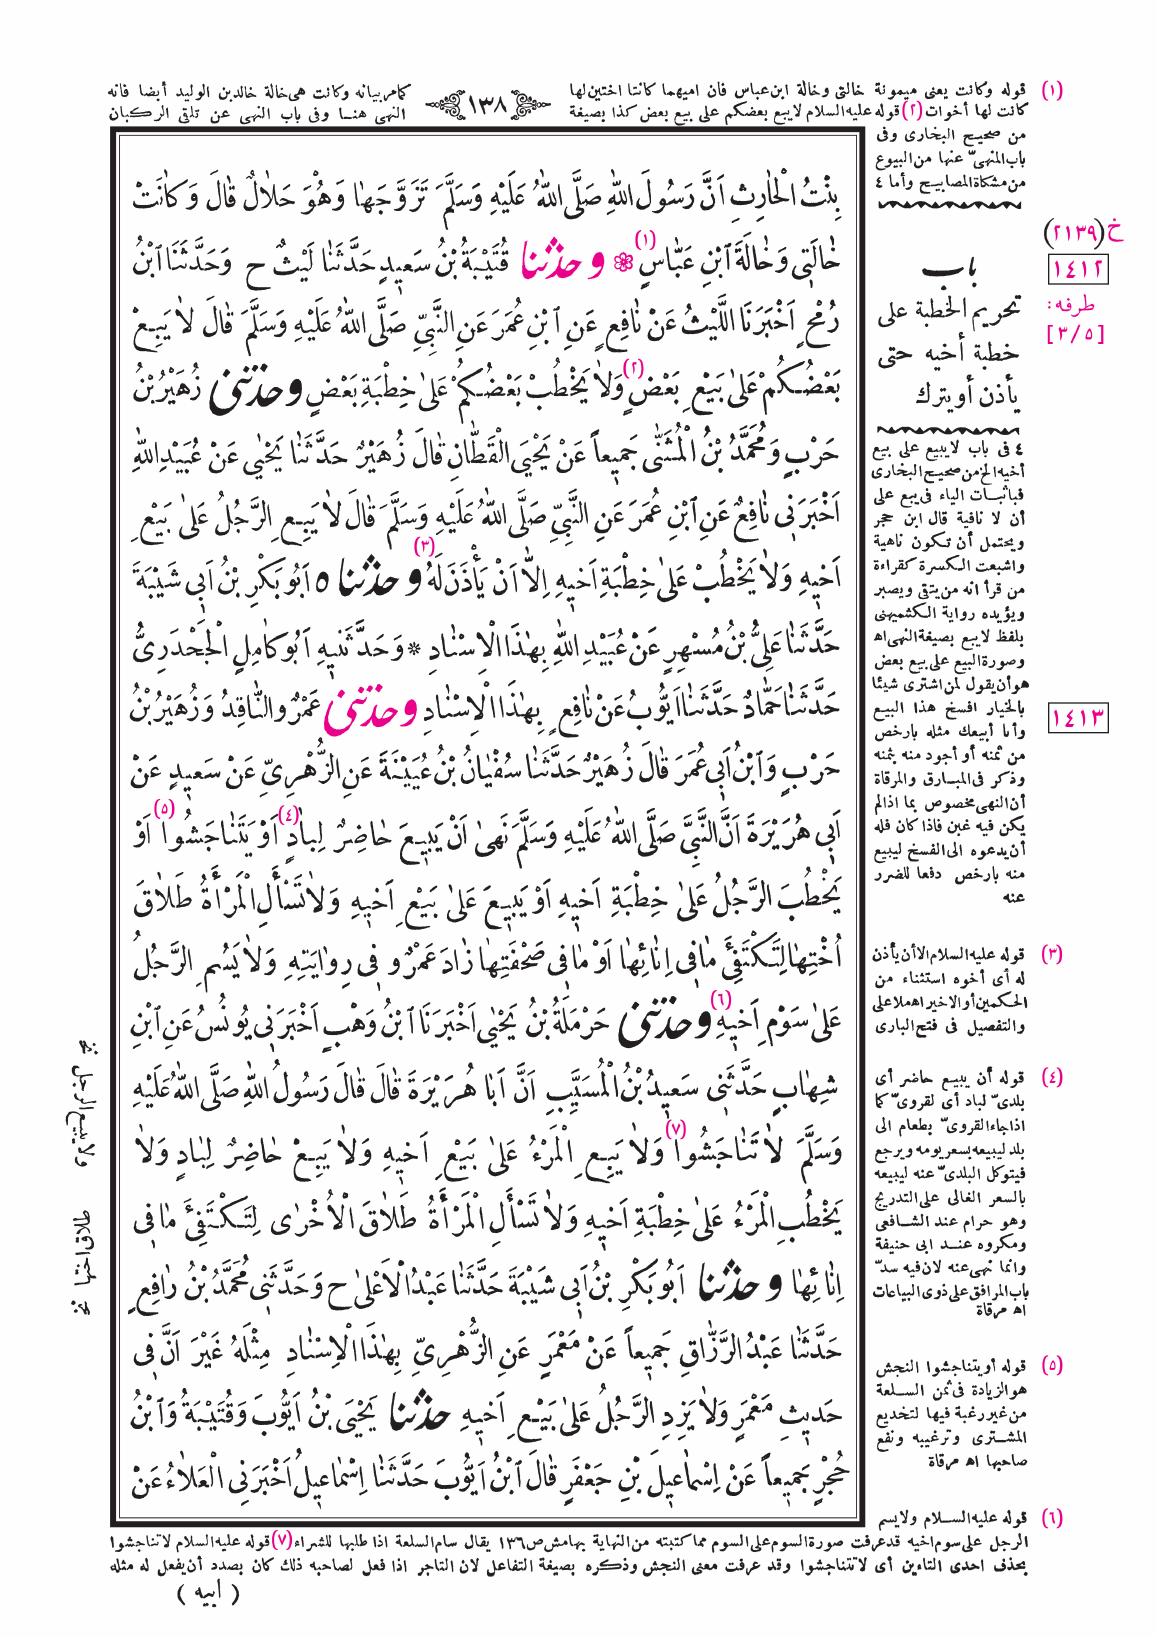 (١) قوله وكانت يعنى ميمونة خالتى وخالة ابن عباس فان اميهما كانتا اختين لها
كانت لها أخوات (٢) قوله عليه السلام لايبع بعضكم على بيع بعض كذا بصيغة
١٣٨
كمامر بيانه وكانت هى خالة خالدبن الوليد أيضا فانه
النهى هنا وفى باب النهى عن تلقى الركبان
من صحيح البخارى وفى
باب المنهىّ عنها من البيوع
من مشكاة المصابيح وأما ٤
خ (٢١٣٩)
١٤١٢
طرفه:
[٣/٥]
باب
تحريم الخطبة على
خطبة أخيه حتى
يأذن أويترك
بِنْتُ الْحَارِثِ اَنَّ رَسُولَ اللهِ صَلَّى اللهُ عَلَيْهِ وَسَلَّمَ تَزَوَّجَهَا وَهُوَ حَلَالٌ قَالَ وَكَانَتْ
خَالَتِى وَخَالَةَ ابْنِ عَبَّاسٍ (١) ❁ وحَدَّثَنَا قُتَيْبَةُ بْنُ سَعِيدٍ حَدَّثَنَا لَيْثٌ ح وَحَدَّثَنَا ابْنُ
رُمْحٍ اَخْبَرَنَا اللَّيْثُ عَنْ نَافِعٍ عَنِ ابْنِ عُمَرَ عَنِ النَّبِىِّ صَلَّى اللهُ عَلَيْهِ وَسَلَّمَ قَالَ لَا يَبِعْ
بَعْضُكُمْ عَلَى بَيْعِ بَعْضٍ (٢) وَلَا يَخْطُبْ بَعْضُكُمْ عَلَى خِطْبَةِ بَعْضٍ وحَدَّثَنِى زُهَيْرُ بْنُ
حَرْبٍ وَمُحَمَّدُ بْنُ الْمُثَنَّى جَمِيعاً عَنْ يَحْيَى الْقَطَّانِ قَالَ زُهَيْرٌ حَدَّثَنَا يَحْيَى عَنْ عُبَيْدِ اللهِ
اَخْبَرَنِى نَافِعٌ عَنِ ابْنِ عُمَرَ عَنِ النَّبِىِّ صَلَّى اللهُ عَلَيْهِ وَسَلَّمَ قَالَ لَا يَبِعِ الرَّجُلُ عَلَى بَيْعِ
اَخِيهِ وَلَا يَخْطُبْ عَلَى خِطْبَةِ اَخِيهِ اِلَّا اَنْ يَأْذَنَ لَهُ (٣) وحَدَّثَنَا ٥ اَبُو بَكْرِ بْنُ اَبِى شَيْبَةَ
حَدَّثَنَا عَلِىُّ بْنُ مُسْهِرٍ عَنْ عُبَيْدِ اللهِ بِهٰذَا الْاِسْنَادِ * وَحَدَّثَنِيهِ اَبُو كَامِلٍ الْجَحْدَرِىُّ
حَدَّثَنَا حَمَّادٌ حَدَّثَنَا اَيُّوبُ عَنْ نَافِعٍ بِهٰذَا الْاِسْنَادِ وحَدَّثَنِى عَمْرٌو النَّاقِدُ وَزُهَيْرُ بْنُ
حَرْبٍ وَابْنُ اَبِى عُمَرَ قَالَ زُهَيْرٌ حَدَّثَنَا سُفْيَانُ بْنُ عُيَيْنَةَ عَنِ الزُّهْرِىِّ عَنْ سَعِيدٍ عَنْ
اَبِى هُرَيْرَةَ اَنَّ النَّبِىَّ صَلَّى اللهُ عَلَيْهِ وَسَلَّمَ نَهَى اَنْ يَبِيعَ حَاضِرٌ لِبَادٍ (٤) اَوْ يَتَنَاجَشُوا (٥) اَوْ
يَخْطُبَ الرَّجُلُ عَلَى خِطْبَةِ اَخِيهِ اَوْ يَبِيعَ عَلَى بَيْعِ اَخِيهِ وَلَا تَسْأَلِ الْمَرْأَةُ طَلَاقَ
اُخْتِهَا لِتَكْتَفِئَ مَا فِى اِنَائِهَا اَوْ مَا فِى صَحْفَتِهَا زَادَ عَمْرٌو فِى رِوَايَتِهِ وَلَا يَسُمِ الرَّجُلُ
عَلَى سَوْمِ اَخِيهِ (٦) وحَدَّثَنِى حَرْمَلَةُ بْنُ يَحْيَى اَخْبَرَنَا ابْنُ وَهْبٍ اَخْبَرَنِى يُونُسُ عَنِ ابْنِ
شِهَابٍ حَدَّثَنِى سَعِيدُ بْنُ الْمُسَيَّبِ اَنَّ اَبَا هُرَيْرَةَ قَالَ قَالَ رَسُولُ اللهِ صَلَّى اللهُ عَلَيْهِ
وَسَلَّمَ لَا تَنَاجَشُوا (٧) وَلَا يَبِعِ الْمَرْءُ عَلَى بَيْعِ اَخِيهِ وَلَا يَبِعْ حَاضِرٌ لِبَادٍ وَلَا
يَخْطُبِ الْمَرْءُ عَلَى خِطْبَةِ اَخِيهِ وَلَا تَسْأَلِ الْمَرْأَةُ طَلَاقَ الْاُخْرَى لِتَكْتَفِئَ مَا فِى
اِنَائِهَا وحَدَّثَنَا اَبُو بَكْرِ بْنُ اَبِى شَيْبَةَ حَدَّثَنَا عَبْدُ الْاَعْلَى ح وَحَدَّثَنِى مُحَمَّدُ بْنُ رَافِعٍ
حَدَّثَنَا عَبْدُ الرَّزَّاقِ جَمِيعاً عَنْ مَعْمَرٍ عَنِ الزُّهْرِىِّ بِهٰذَا الْاِسْنَادِ مِثْلَهُ غَيْرَ اَنَّ فِى
حَدِيثِ مَعْمَرٍ وَلَا يَزِدِ الرَّجُلُ عَلَى بَيْعِ اَخِيهِ حَدَّثَنَا يَحْيَى بْنُ اَيُّوبَ وَقُتَيْبَةُ وَابْنُ
حُجْرٍ جَمِيعاً عَنْ اِسْمَاعِيلَ بْنِ جَعْفَرٍ قَالَ ابْنُ اَيُّوبَ حَدَّثَنَا اِسْمَاعِيلُ اَخْبَرَنِى الْعَلَاءُ عَنْ
٤ فى باب لايبيع على بيع
أخيه الخ من صحيح البخارى
فباثبات الياء فى يبع على
أن لا نافية قال ابن حجر
ويحتمل أن تكون ناهية
واشبعت الكسرة كقراءة
من قرأ انه من يتقى ويصبر
ويؤيده رواية الكشميهنى
بلفظ لايبع بصيغة النهى اه
وصورة البيع على بيع بعض
هو أن يقول لمن اشترى شيئا
بالخيار افسخ هذا البيع
وأنا أبيعك مثله بارخص
من ثمنه أو أجود منه بثمنه
وذكر فى المبارق والمرقاة
أن النهى مخصوص بما اذالم
يكن فيه غبن فاذا كان فله
أن يدعوه الى الفسخ ليبيع
منه بارخص دفعا للضرر
عنه
١٤١٣
(٣) قوله عليه السلام الا أن يأذن
له أى أخوه استثناء من
الحكمين أو الاخير اه ملا على
والتفصيل فى فتح البارى
(٤) قوله أن يبيع حاضر أى
بلدىّ لباد أى لقروىّ كما
اذا جاء القروىّ بطعام الى
بلد ليبيعه بسعر يومه ويرجع
فيتوكل البلدىّ عنه ليبيعه
بالسعر الغالى على التدريج
وهو حرام عند الشافعى
ومكروه عند ابى حنيفة
وانما نهى عنه لان فيه سدّ
باب المرافق على ذوى البياعات
اه مرقاة
(٥) قوله أو يتناجشوا النجش
هو الزيادة فى ثمن السلعة
من غير رغبة فيها لتخديع
المشترى وترغيبه ونفع
صاحبها اه مرقاة
(٦) قوله عليه السلام ولايسم
الرجل على سوم اخيه قد عرفت صورة السوم على السوم مما كتبته من النهاية بهامش ص١٣٦ يقال سام السلعة اذا طلبها للشراء (٧) قوله عليه السلام لاتناجشوا
بحذف احدى التاءين أى لاتتناجشوا وقد عرفت معنى النجش وذكره بصيغة التفاعل لان التاجر اذا فعل لصاحبه ذلك كان بصدد أن يفعل له مثله
( أبيه )
ولايبيع الرجل نخ